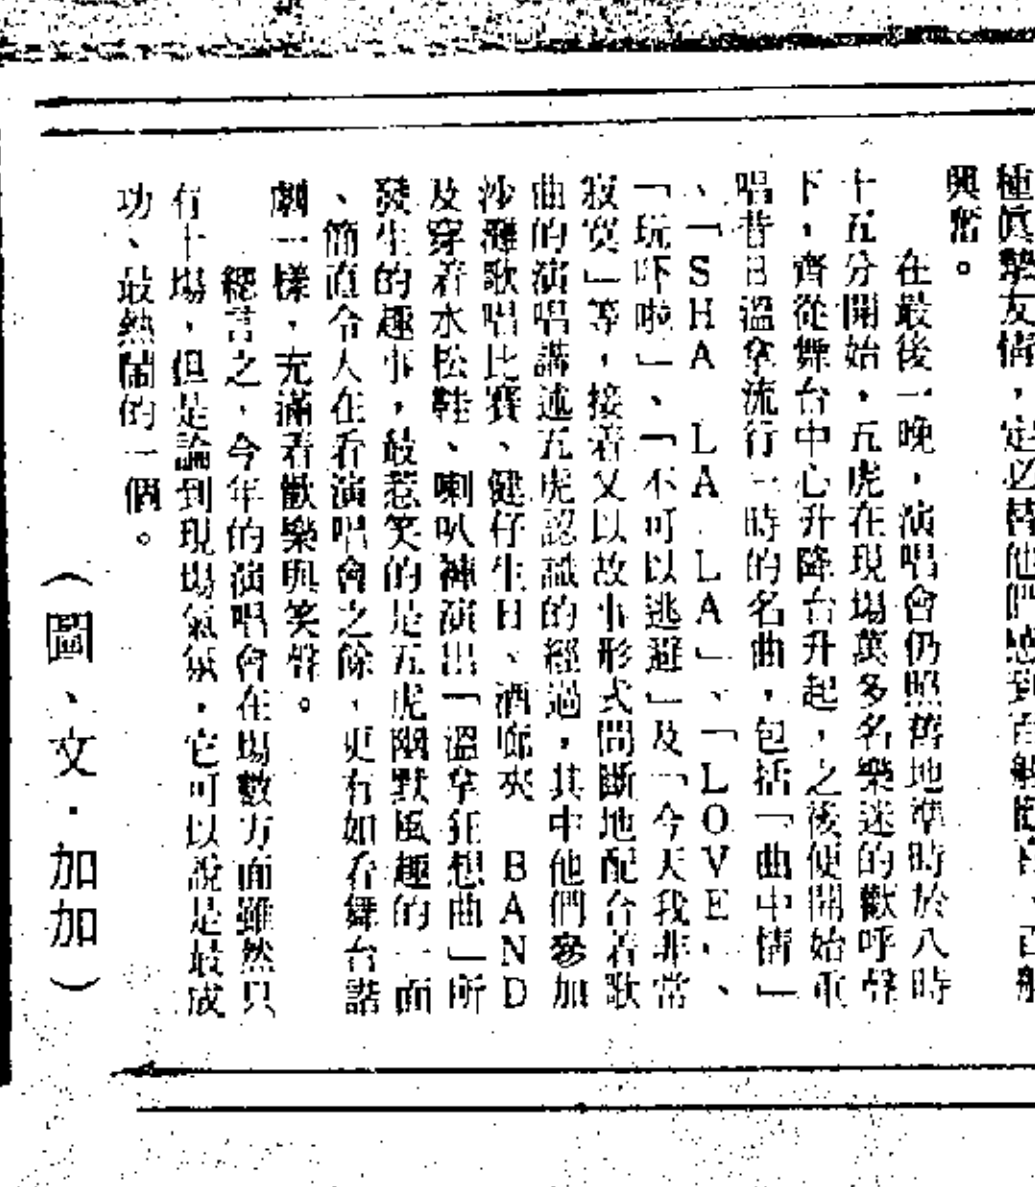 種真摯友情，定必替他們感到百般
興奮。
在最後一晚，演唱會仍照舊地準時於八時
十五分開始，五虎在現場萬多名樂迷的歡呼聲
下，齊從舞台中心升降台升起，之後便開始重
唱昔日溫拿流行一時的名曲，包括「曲中情」
、「SHA LA LA LA」、「LOVE」、
「玩吓啦」、「不可以逃避」及「今天我非常
寂寞」等，接着又以故事形式間斷地配合着歌
曲的演唱講述五虎認識的經過，其中他們參加
沙灘歌唱比賽、健仔生日、酒廊夾 BAND
及穿着水松鞋、喇叭褲演出「溫拿狂想曲」所
發生的趣事，最惹笑的是五虎幽默風趣的一面
、簡直令人在看演唱會之餘，更有如看舞台諧
劇一樣，充滿着歡樂與笑聲。
總言之，今年的演唱會在場數方面雖然只
有十場，但是論到現場氣氛，它可以說是最成
功、最熱鬧的一個。
（圖、文．加加）